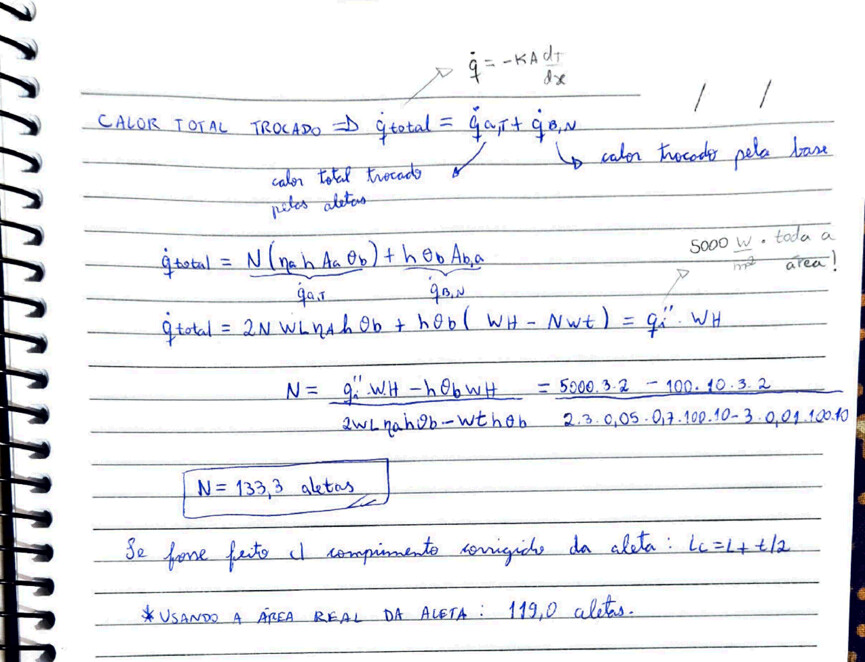 q̇ = -KA dT/dx
/ /
CALOR TOTAL TROCADO ⇒ q̇total = q̇a,T + q̇B,N
calor total trocado pelas aletas
calor trocado pela base
q̇total = N(ηa h Aa θb) + h θb Ab,a
q̇a,T q̇B,N
5000 W/m² . toda a área!
q̇total = 2N WL ηA h θb + h θb ( WH - NWt ) = q̇i'' . WH
N = (q̇i'' . WH - h θb WH) / (2WL ηa h θb - Wt h θb) = (5000.3.2 - 100.10.3.2) / (2.3.0,05.0,7.100.10 - 3.0,01.100.10)
N = 133,3 aletas
Se fosse feito c/ comprimento corrigido da aleta : Lc = L + t/2
* USANDO A ÁREA REAL DA ALETA : 119,0 aletas.